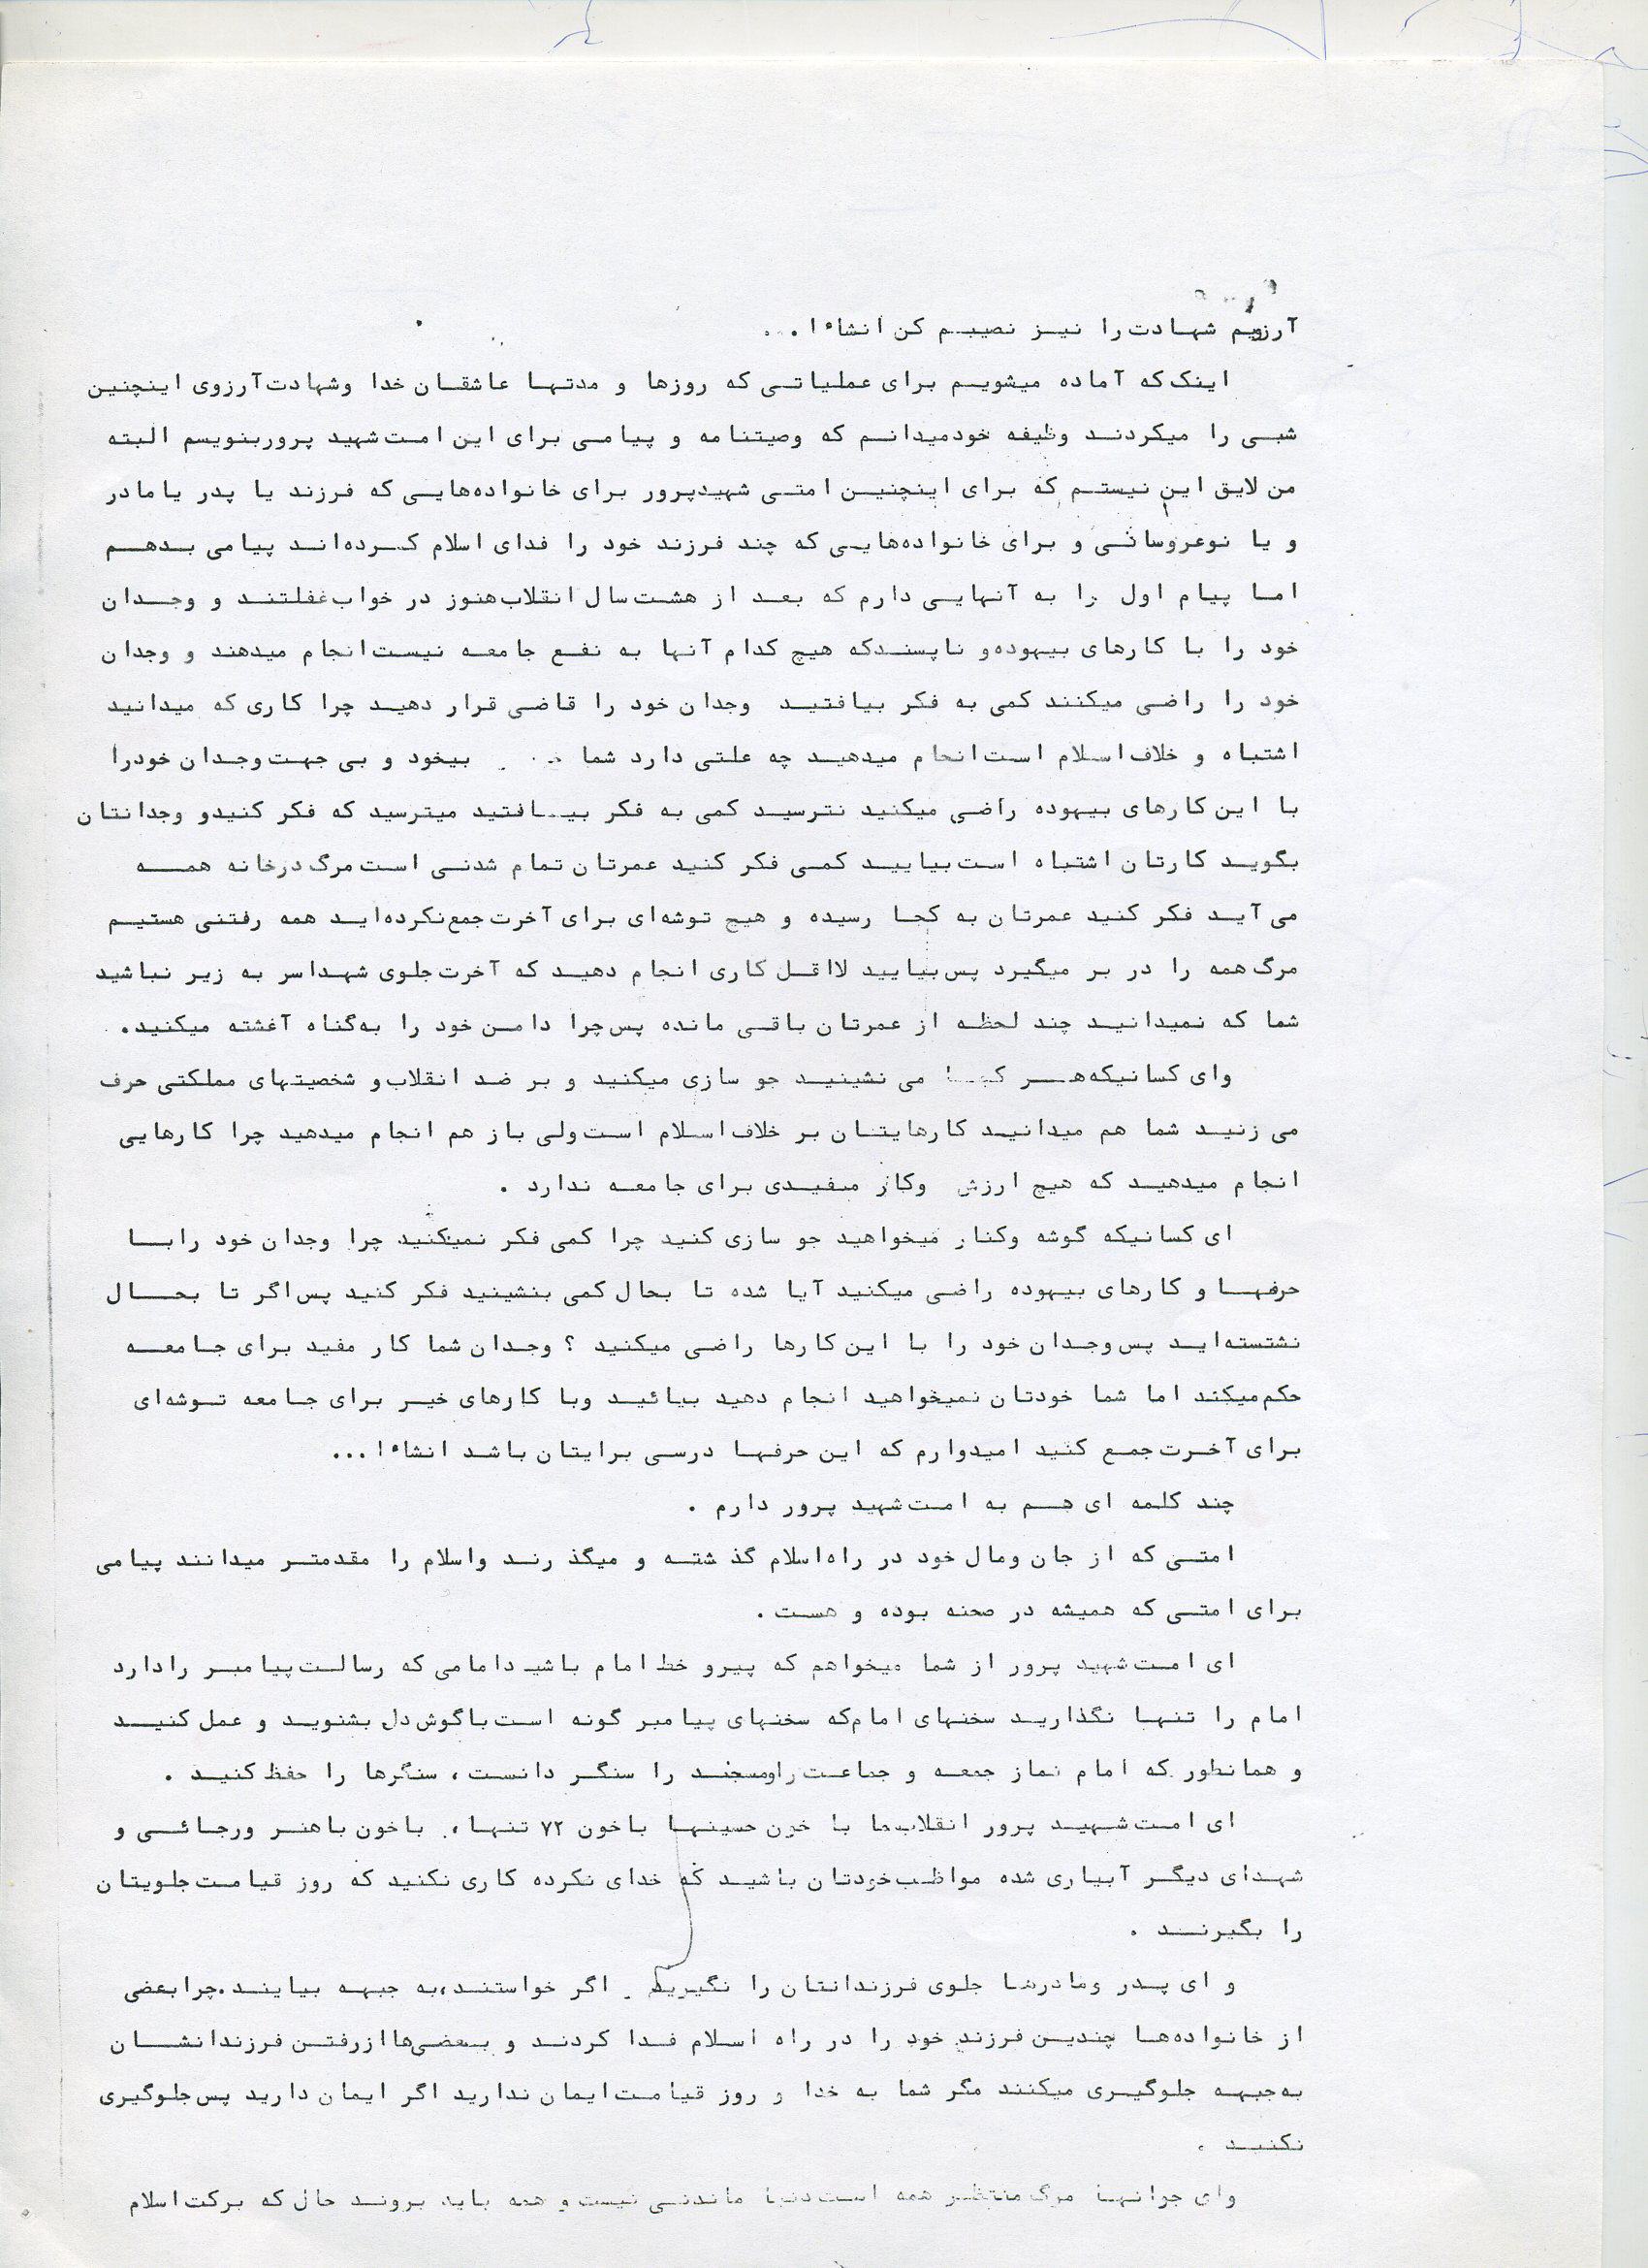 آرزویم شهادت را نیز نصیبم کن انشاء ا...
اینک که آماده میشویم برای عملیاتی که روزها و مدتها عاشقان خدا وشهادت آرزوی اینچنین
شبی را میکردند وظیفه خودمیدانم که وصیتنامه و پیامی برای این امت شهید پروربنویسم البته
من لایق این نیستم که برای اینچنین امتی شهیدپرور برای خانواده‌هایی که فرزند یا پدر یامادر
و یا نوعروسانی و برای خانواده‌هایی که چند فرزند خود را فدای اسلام کرده‌اند پیامی بدهم
اما پیام اول را به آنهایی دارم که بعد از هشت سال انقلاب هنوز در خواب غفلتند و وجدان
خود را با کارهای بیهوده‌و ناپسندکه هیچ کدام آنها به نفع جامعه نیست انجام میدهند و وجدان
خود را راضی میکنند کمی به فکر بیافتید وجدان خود را قاضی قرار دهید چرا کاری که میدانید
اشتباه و خلاف اسلام است انجام میدهید چه علتی دارد شما بیخود و بی جهت وجدان خودرا
با این کارهای بیهوده راضی میکنید نترسید کمی به فکر بیافتید میترسید که فکر کنیدو وجدانتان
بگوید کارتان اشتباه است بیایید کمی فکر کنید عمرتان تمام شدنی است مرگ درخانه همه
می آید فکر کنید عمرتان به کجا رسیده و هیچ توشه‌ای برای آخرت جمع نکرده‌اید همه رفتنی هستیم
مرگ همه را در بر میگیرد پس بیایید لااقل کاری انجام دهید که آخرت جلوی شهداسر به زیر نباشید
شما که نمیدانید چند لحظه از عمرتان باقی مانده پس چرا دامن خود را به‌گناه آغشته میکنید.
وای کسانیکه‌هر کجا می نشینید جو سازی میکنید و بر ضد انقلاب و شخصیتهای مملکتی حرف
می زنید شما هم میدانید کارهایتان بر خلاف اسلام است ولی باز هم انجام میدهید چرا کارهایی
انجام میدهید که هیچ ارزش وکار مفیدی برای جامعه ندارد .
ای کسانیکه گوشه وکنار میخواهید جو سازی کنید چرا کمی فکر نمیکنید چرا وجدان خود رابا
حرفها و کارهای بیهوده راضی میکنید آیا شده تا بحال کمی بنشینید فکر کنید پس اگر تا بحال
نشتسته‌اید پس وجدان خود را با این کارها راضی میکنید ؟ وجدان شما کار مفید برای جامعه
حکم میکند اما شما خودتان نمیخواهید انجام دهید بیائید وبا کارهای خیر برای جامعه توشه‌ای
برای آخرت جمع کنید امیدوارم که این حرفها درسی برایتان باشد انشاء ا...
چند کلمه ای هم به امت شهید پرور دارم .
امتی که از جان ومال خود در راه‌اسلام گذشته و میگذرند واسلام را مقدمتر میدانند پیامی
برای امتی که همیشه در صحنه بوده و هست .
ای امت شهید پرور از شما میخواهم که پیرو خط امام باشید امامی که رسالت پیامبر رادارد
امام را تنها نگذارید سخنهای امام‌که سخنهای پیامبر گونه است باگوش دل بشنوید و عمل کنید
و همانطور که امام نماز جمعه و جماعت راومسجد را سنگر دانست، سنگرها را حفظ کنید .
ای امت شهید پرور انقلاب ما با خون حسینها باخون ۷۲ تنها، باخون باهنر ورجائی و
شهدای دیگر آبیاری شده مواظب خودتان باشید که خدای نکرده کاری نکنید که روز قیامت جلویتان
را بگیرند .
و ای پدر ومادرها جلوی فرزندانتان را نگیرید . اگر خواستند،به جبهه بیایند.چرابعضی
از خانواده‌ها چندین فرزند خود را در راه اسلام فدا کردند و بعضی‌هاازرفتن فرزندانشان
به‌جبهه جلوگیری میکنند مگر شما به خدا و روز قیامت ایمان ندارید اگر ایمان دارید پس جلوگیری
نکنید .
وای جوانها مرگ منتظر همه است دنیا ماندنی نیست و همه باید بروند حال که برکت اسلام